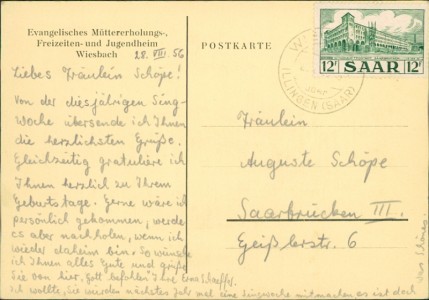 Evangelisches Müttererholungs-,
Freizeiten- und Jugendheim
Wiesbach
28. VIII. 56
Liebes Fräulein Schöpe!
Von der diesjährigen Sing-
Woche übersende ich Ihnen
die herzlichsten Grüße.
Gleichzeitig gratuliere ich
Ihnen herzlich zu Ihrem
Geburtstage. Gerne wäre ich
persönlich gekommen, werde
es aber nachholen, wenn ich
wieder daheim bin. So wünsche
ich Ihnen alles Gute und grüße
Sie von hier. Gott befohlen! Ihre Erna
Ich wollte, Sie würden nächstes Jahr mal eine Singwoche mitmachen, es ist doch
was Schönes.
POSTKARTE
ILLINGEN (SAAR)
12F SAAR 12F
Fräulein
Auguste Schöpe
Saarbrücken III.
Geißlerstr. 6